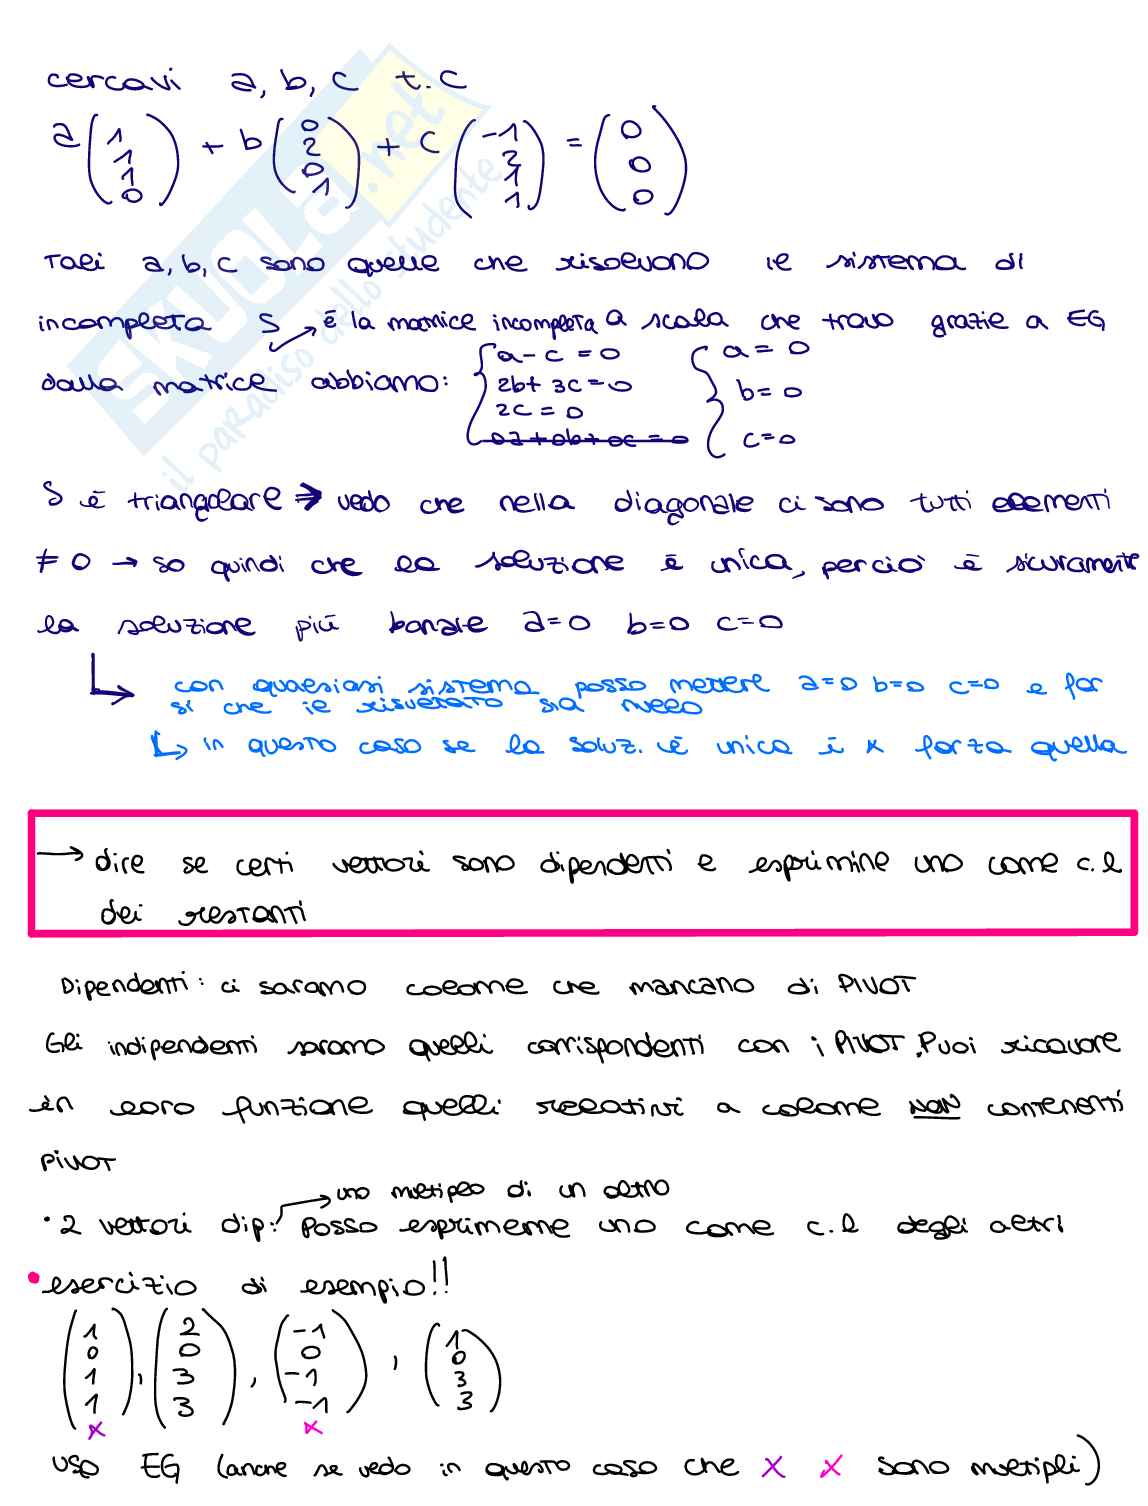 cercavi a, b, c t.c
a (1 1 1 0) + b (0 2 0 1) + c (-1 3 1 1) = (0 0 0)
Tali a, b, c sono quelle che risolvono il sistema di
incompleta S → è la matrice incompleta a scala che trovo grazie a EG
dalla matrice abbiamo: { a - c = 0 { a = 0
2b + 3c = 0 b = 0
2c = 0 c = 0
0a + 0b + 0c = 0
S è triangolare ⇒ vedo che nella diagonale ci sono tutti elementi
≠ 0 → so quindi che la soluzione è unica, perciò è sicuramente
la soluzione più banale a=0 b=0 c=0
↳ con qualsiasi sistema posso mettere a=0 b=0 c=0 e far
sì che il risultato sia nullo
↳ in questo caso se la soluz. è unica è x forza quella
→ dire se certi vettori sono dipendenti e esprimine uno come c.l
dei restanti
Dipendenti: ci saranno colonne che mancano di PIVOT
Gli indipendenti saranno quelli corrispondenti con i PIVOT. Puoi ricavare
in loro funzione quelli relativi a colonne NON contenenti
PIVOT
→ uno multiplo di un altro
• 2 vettori dip: posso esprimerne uno come c.l degli altri
• esercizio di esempio!!
(1 0 1 1), (2 0 3 3), (-1 0 -1 -1), (1 0 3 3)
x x
uso EG (anche se vedo in questo caso che x x sono multipli)
SKUOLA.net
il paradiso dello studente